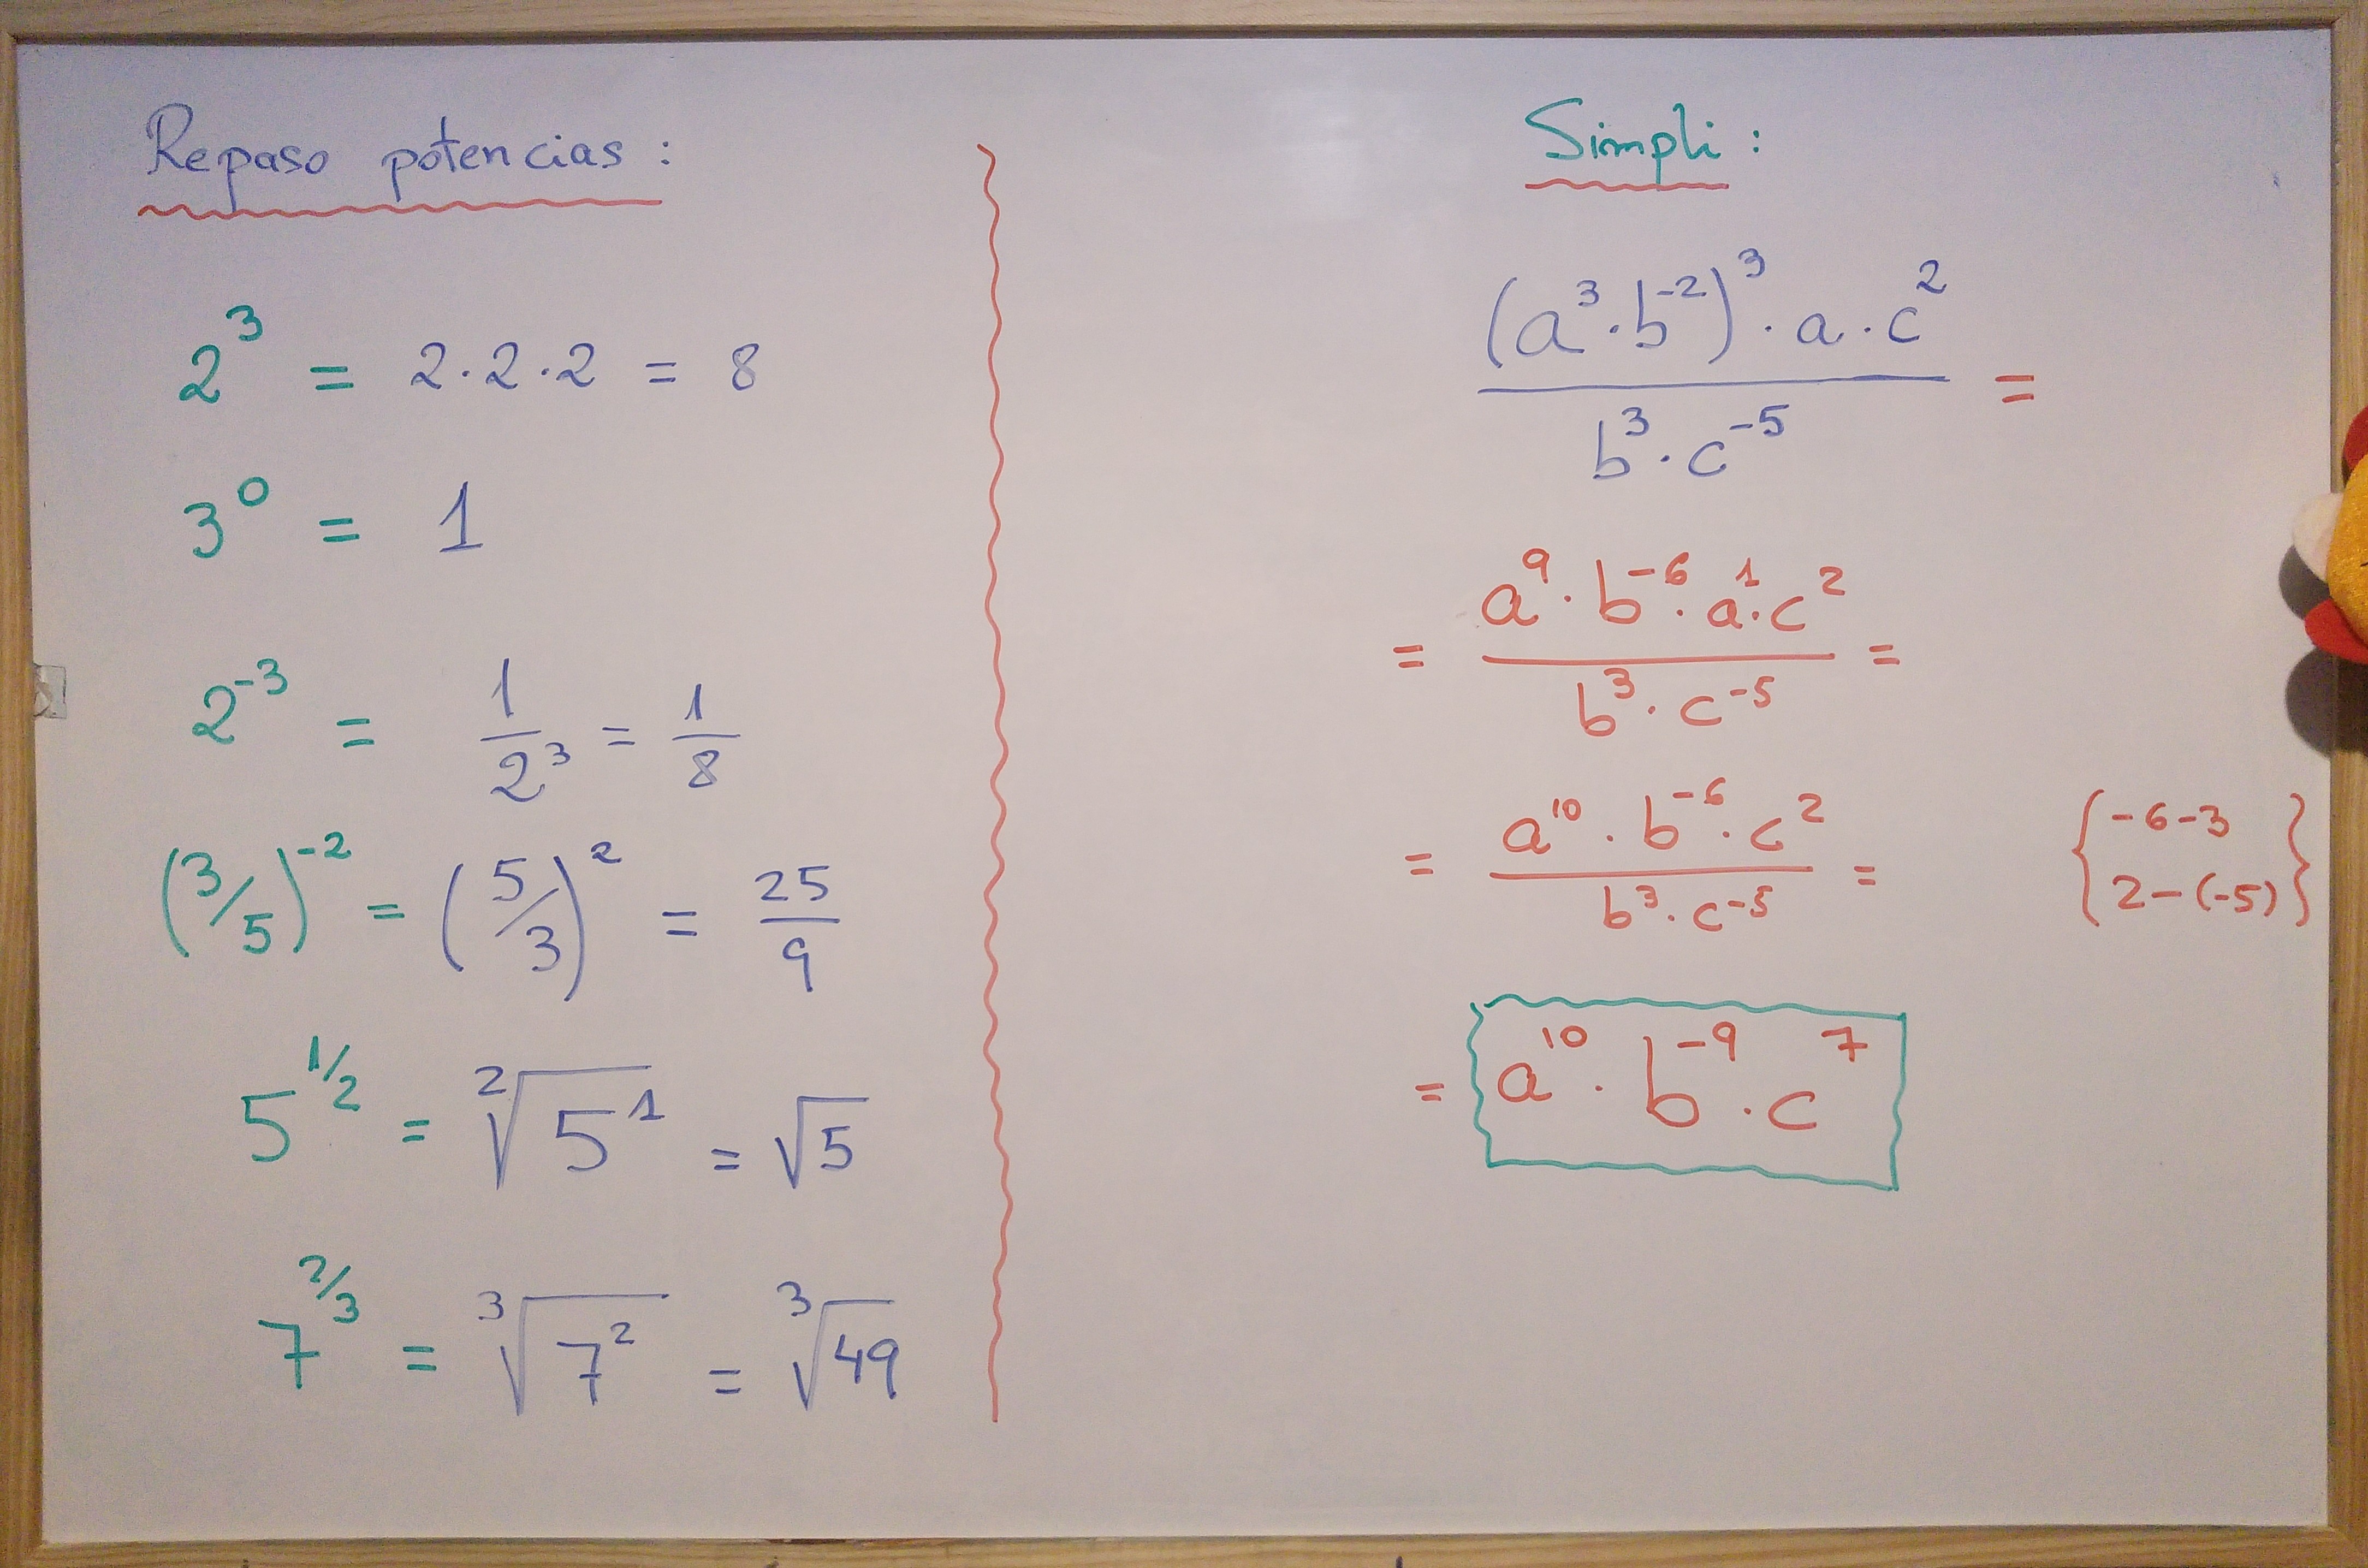 Repaso potencias:
2³ = 2·2·2 = 8
3⁰ = 1
2⁻³ = 1/2³ = 1/8
(3/5)⁻² = (5/3)² = 25/9
5^(1/2) = ²√5¹ = √5
7^(2/3) = ³√7² = ³√49
Simpli:
(a³·b⁻²)³·a·c² / b³·c⁻⁵ =
= a⁹·b⁻⁶·a¹·c² / b³·c⁻⁵ =
= a¹⁰·b⁻⁶·c² / b³·c⁻⁵ =
{-6-3
2-(-5)}
= a¹⁰·b⁻⁹·c⁷